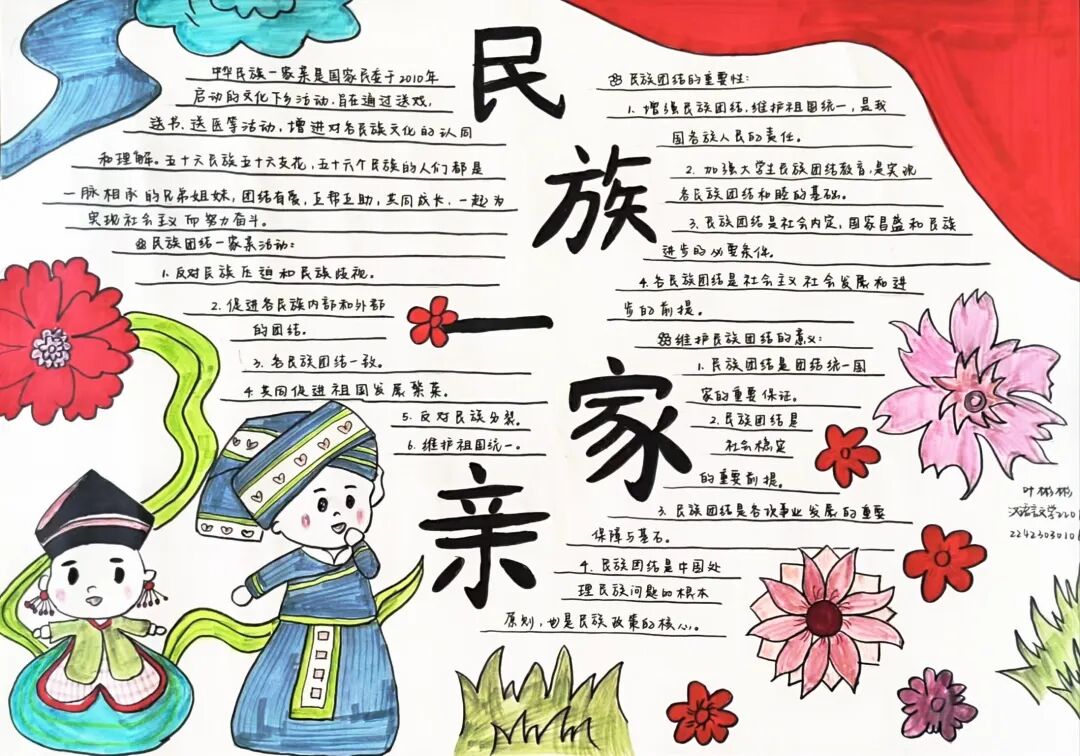 民族一家亲
中华民族一家亲是国家民委于2010年
启动的文化下乡活动,旨在通过送戏,
送书、送医等活动,增进对各民族文化的认同
和理解。五十六民族五十六支花,五十六个民族的人们都是
一脉相承的兄弟姐妹,团结有爱,互帮互助,共同成长,一起为
实现社会主义而努力奋斗。
民族团结一家亲活动:
1.反对民族压迫和民族歧视。
2.促进各民族内部和外部
的团结。
3.各民族团结一致。
4.共同促进祖国发展繁荣。
5.反对民族分裂。
6.维护祖国统一。
民族团结的重要性:
1.增强民族团结,维护祖国统一,是我
国各族人民的责任。
2.加强大学生民族团结教育,是实现
各民族团结和睦的基础。
3.民族团结是社会内定,国家昌盛和民族
进步的必要条件。
4.各民族团结是社会主义社会发展和进
步的前提。
维护民族团结的意义:
1.民族团结是团结统一国
家的重要保证。
2.民族团结是
社会稳定
的重要前提。
3.民族团结是各项事业发展的重要
保障与基石。
4.民族团结是中国处
理民族问题的根本
原则,也是民族政策的核心。
叶彬彬
汉语言文学2201
2242303010